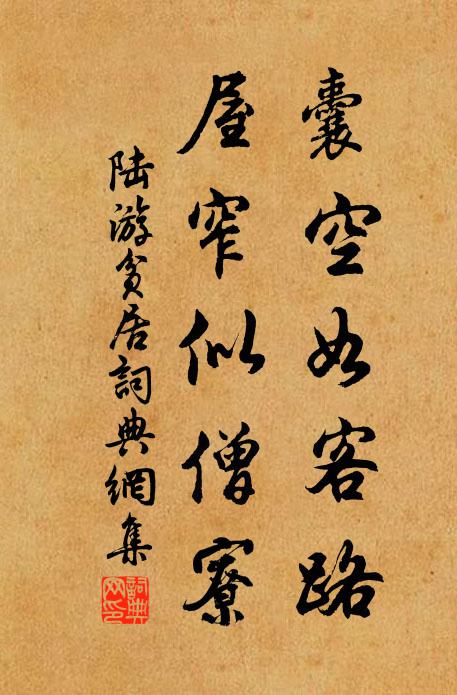 囊空如客路
屋窄似僧寮
陆游贫居詞典網集
詞典网印